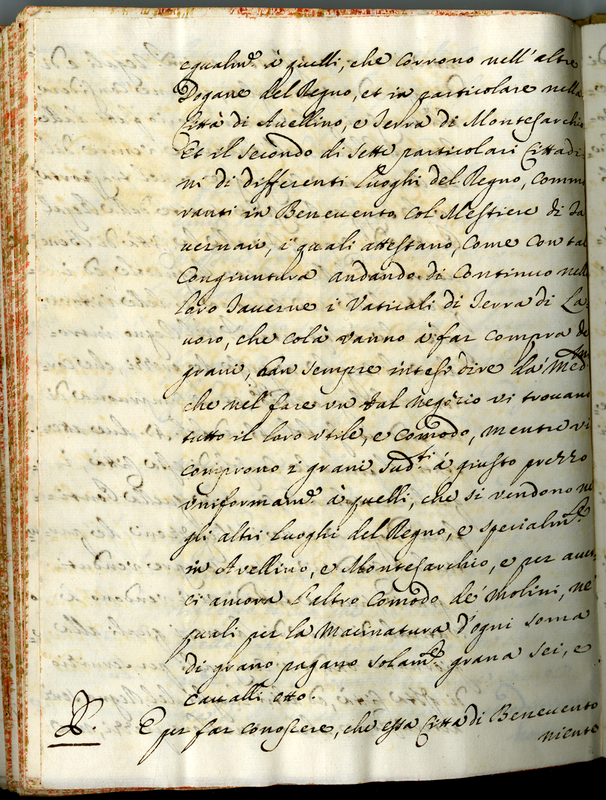 egualm.e à quelli, che corrono nell'altre
Dogane del Regno, et in particolare nella
Città di Avellino, e Terra di Montesarchio
Et il secondo di sette particolari Cittadi=
ni di differenti Luoghi del Regno, comm
ranti in Benevento col Mestiere di Ta
vernari, i quali attestano, come con tal
congiuntura andando di continuo nelle
loro Taverne i Vaticali di Terra di La
voro, che colà vanno à far compra de
grani, han sempre inteso dire da' Med.mi
che nel fare un tal negozio vi trovano
tutto il loro utile, e comodo, mentre vi
comprono i grani sud.ti à giusto prezzo
uniformam.e à quelli, che si vendono ne
gli altri Luoghi del Regno, e specialm.e
in Avellino, e Montesarchio, e per aver
ci ancora l'altro comodo de' molini, ne'
quali per la macinatura d'ogni soma
di grano pagano solam.e grana sei, e
cavalli otto.
E per far conoscere, che essa Città di Benevento
niente